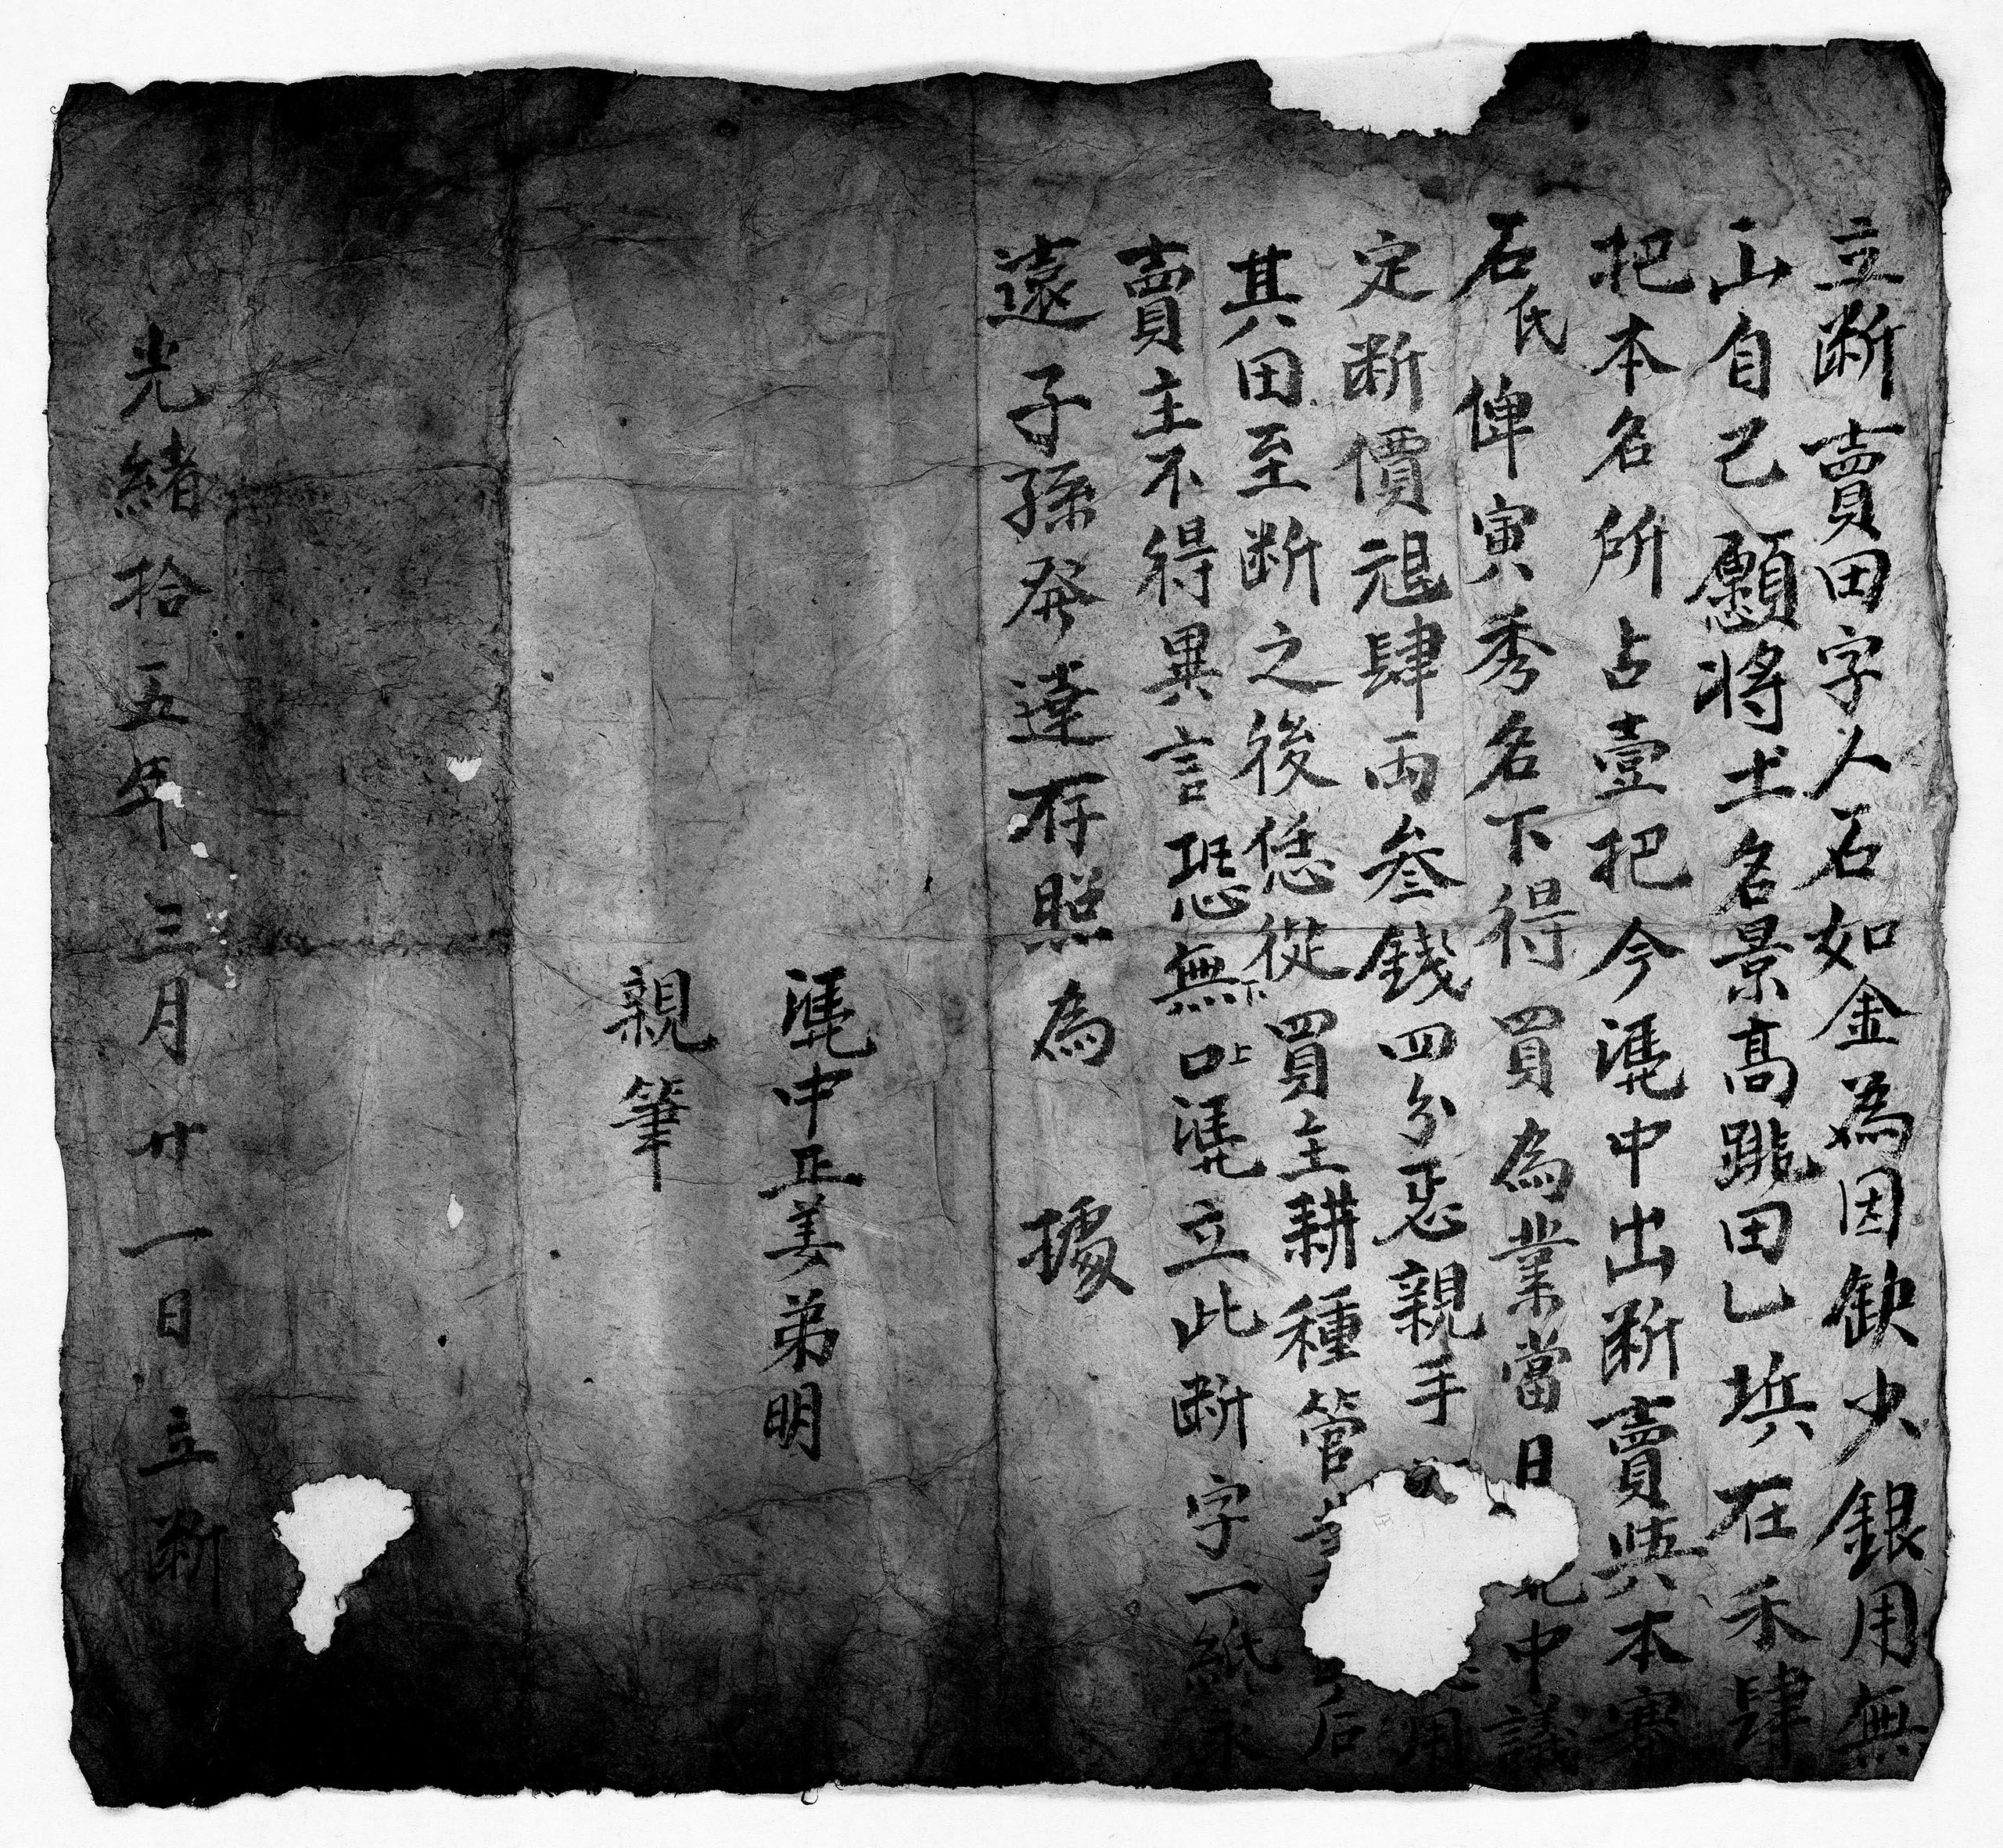 立断賣田字人石如金為因缺少銀用無
山自己願将土名景高跳田乚坵在禾肆
把本名所占壹把今凴中出断賣與本寨
石氏俾寅秀名下得買為業當日中議
定断價禔肆両叁錢四分㤙親手用
其田至断之後恁從買主耕種管后
賣主不得異言恐無下口上凴立此断字一紙永
遠子孫癸達存照為 據
凴中正姜弟明
親筆
光緒拾五年三月廿一日立断